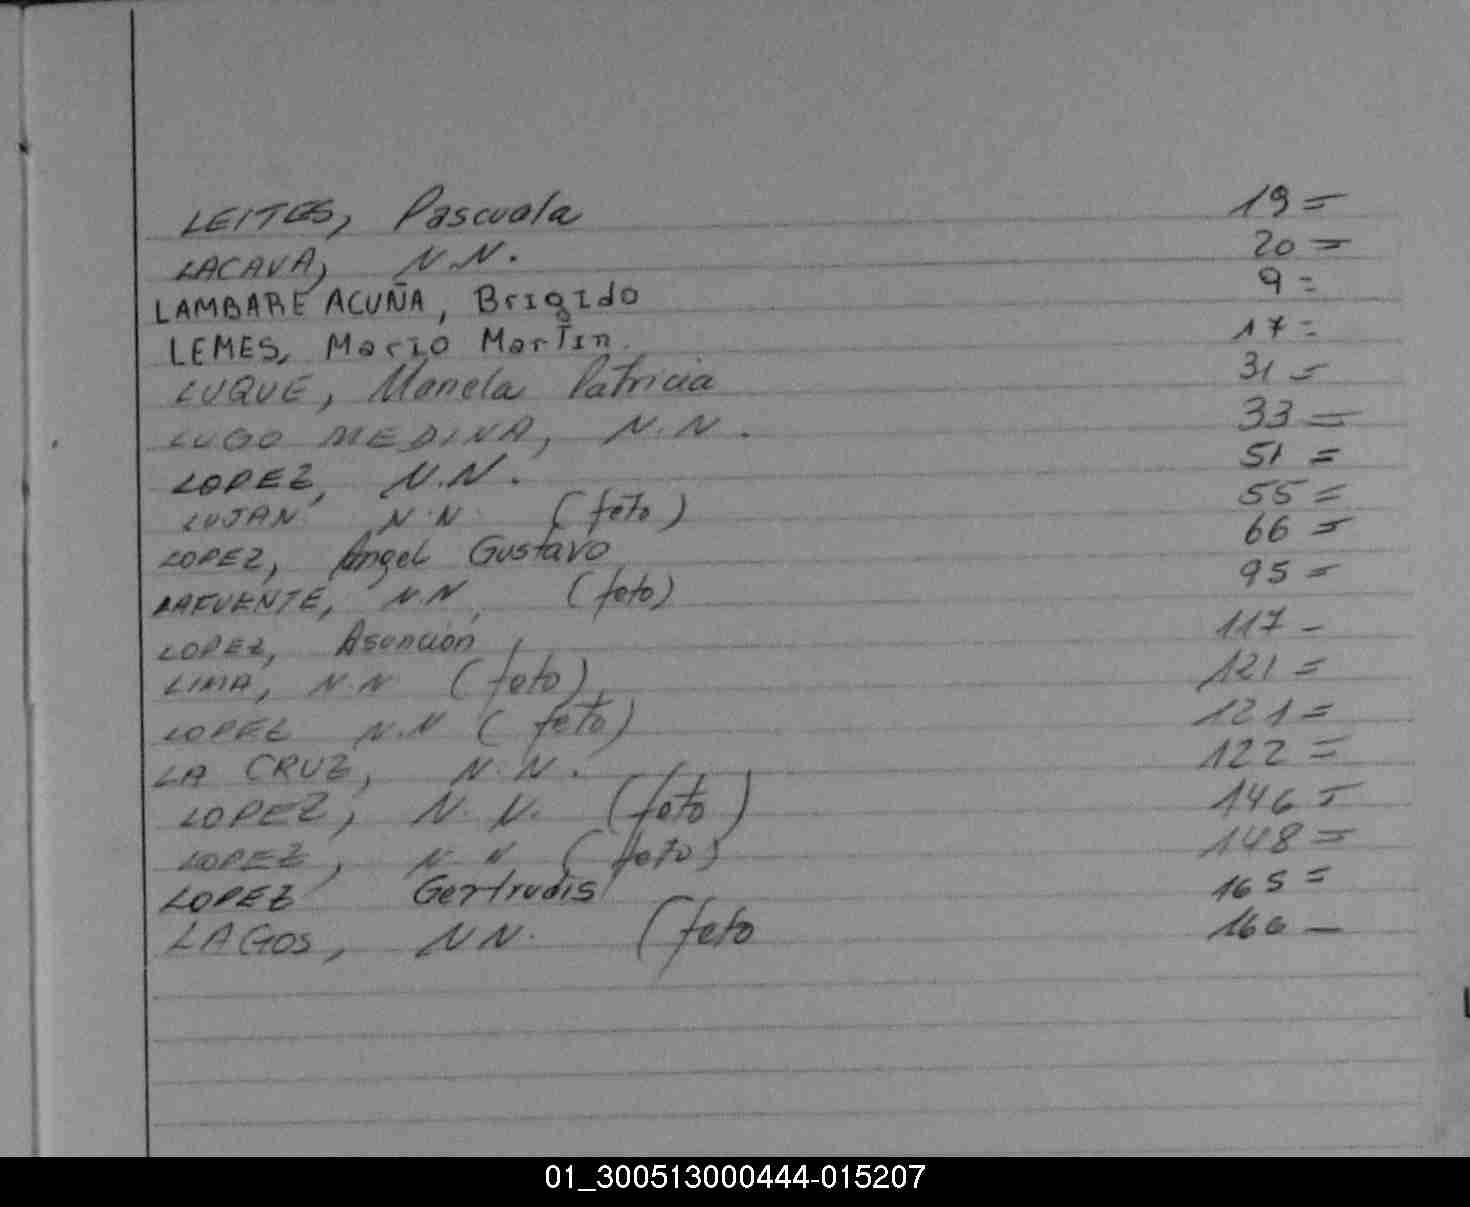 LEITES, Pascuala 19=
LACAVA, N.N. 20=
LAMBARE ACUÑA, Brigido 9=
LEMES, Mario Martin. 17=
LUQUE, Mariela Patricia 31=
LUGO MEDINA, N.N. 33=
LOPEZ, N.N. 51=
LUJAN N.N. (feto) 55=
LOPEZ, Angel Gustavo 66=
LAFUENTE, N.N, (feto) 95=
LOPEZ, Asuncion 117-
LIMA, N.N (feto) 121=
LOPEZ N.N (feto) 121=
LA CRUZ, N.N. 122=
LOPEZ, N.N. (feto) 146=
LOPEZ, N N (feto) 148=
LOPEZ Gertrudis 165=
LAGOS, NN. (feto 166-
01_300513000444-015207